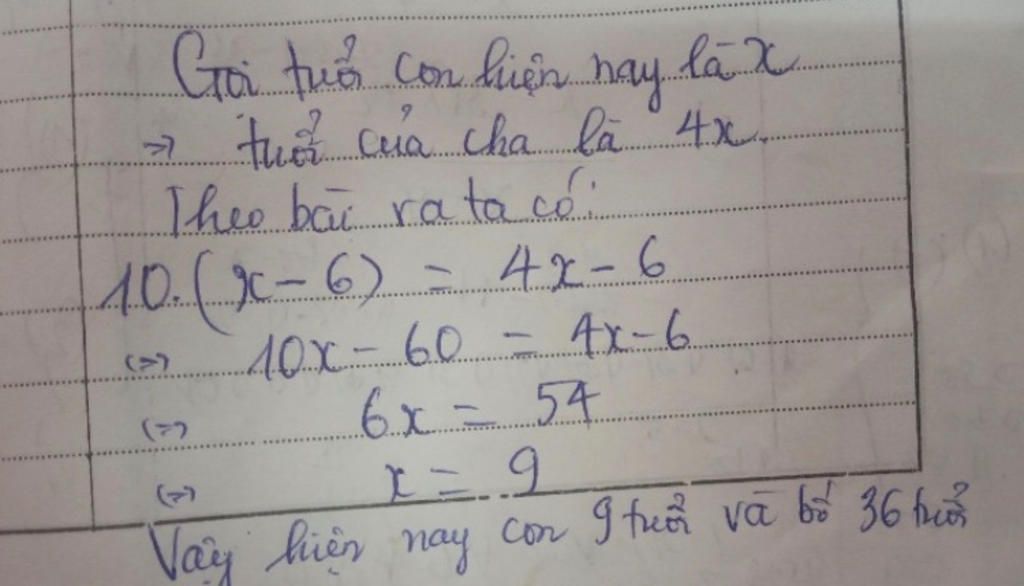 Gọi tuổi con hiện nay là x
=> tuổi của cha là 4x.
Theo bài ra ta có:
10.(x - 6) = 4x - 6
(=) 10x - 60 = 4x - 6
(=) 6x = 54
(=) x = 9
Vậy hiện nay con 9 tuổi và bố 36 tuổi